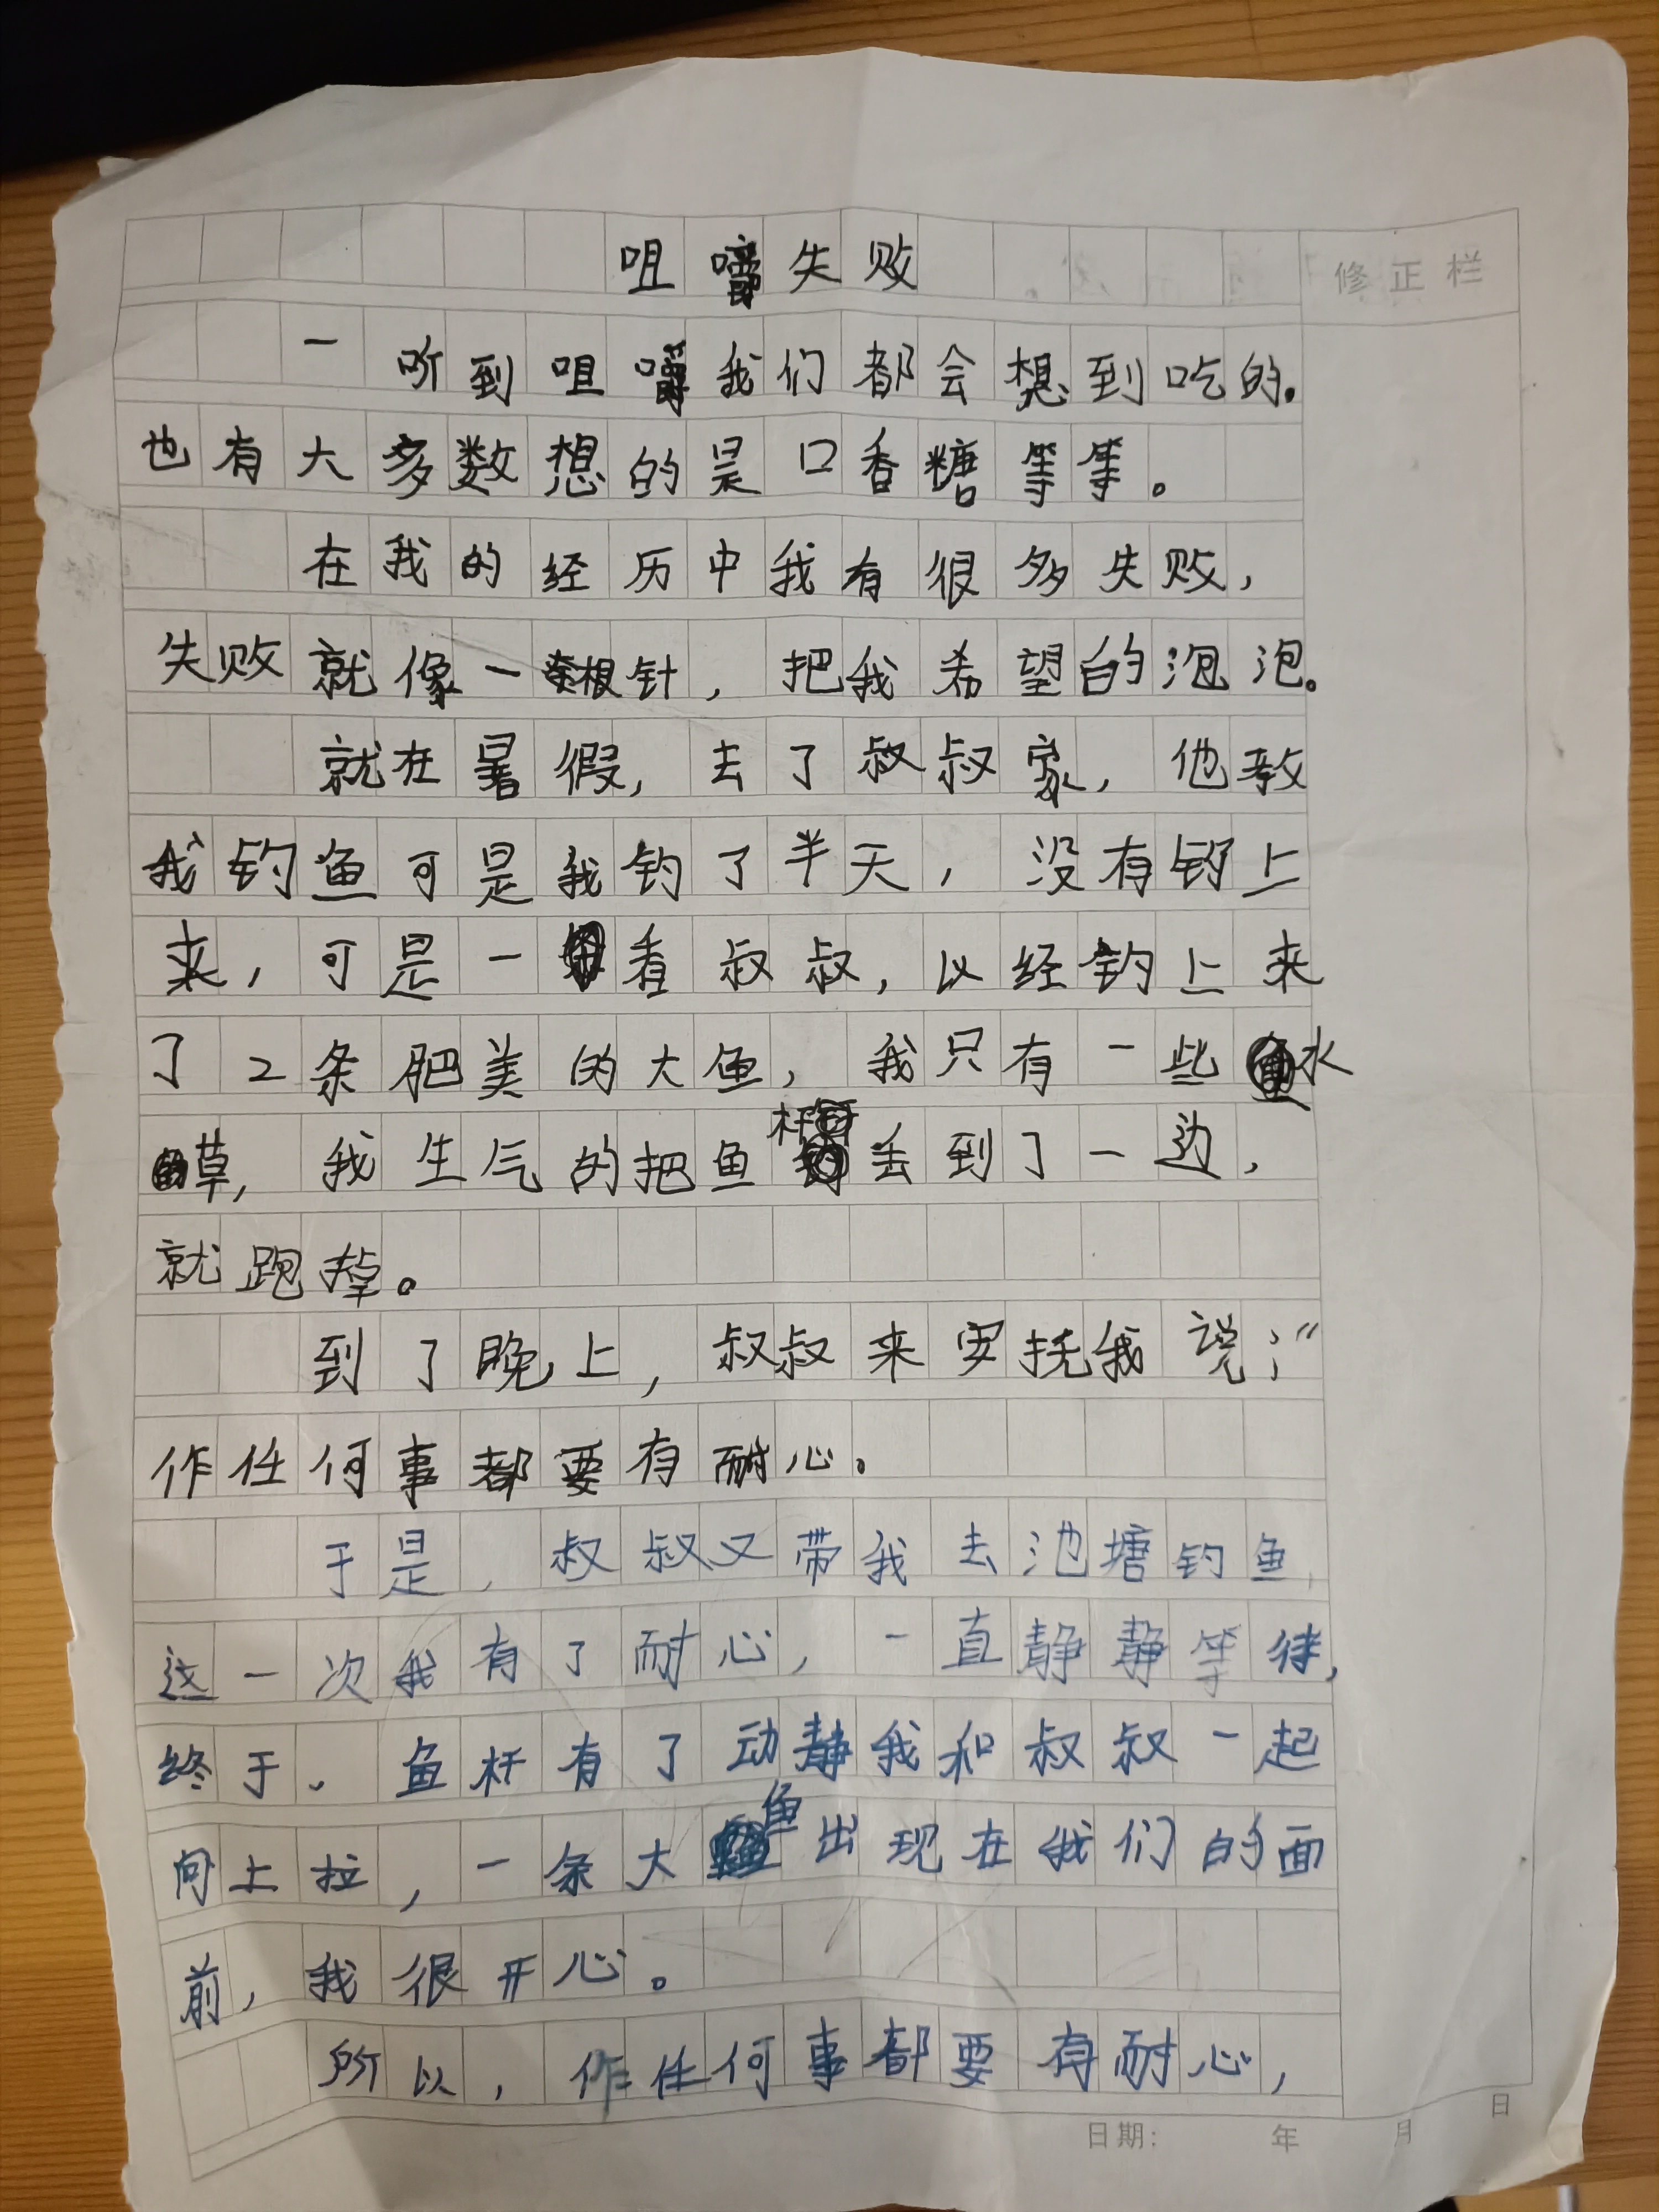 咀嚼失败
修正栏
一听到咀嚼我们都会想到吃的。
也有大多数想的是口香糖等等。
在我的经历中我有很多失败，
失败就像一根针，把我希望的泡泡。
就在暑假，去了叔叔家，他教
我钓鱼可是我钓了半天，没有钓上
来，可是一看叔叔，以经钓上来
了2条肥美的大鱼，我只有一些水
草，我生气的把鱼杆丢到了一边，
就跑掉。
到了晚上，叔叔来安抚我说：“
作任何事都要有耐心。
于是，叔叔又带我去池塘钓鱼，
这一次我有了耐心，一直静静等待，
终于，鱼杆有了动静我和叔叔一起
向上拉，一条大鱼出现在我们的面
前，我很开心。
所以，作任何事都要有耐心，
日期： 年 月 日